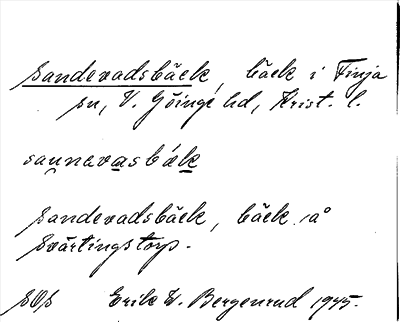 Sandevadsbäck, bäck i Finja
sn, V. Göinge hd, Krist. l.
saunavasbäk
Sandevadsbäck, bäck på
Svärtingstorp.
SOS Erik W. Bergenrud 1945.